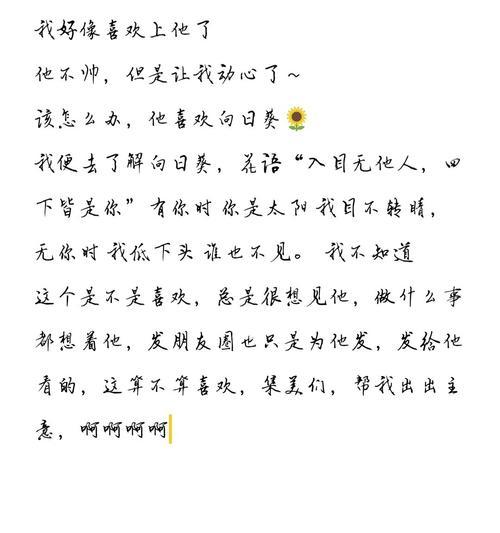 我好像喜欢上他了
他不帅，但是让我动心了~
该怎么办，他喜欢向日葵🌻
我便去了解向日葵，花语“入目无他人，四
下皆是你”有你时 你是太阳 我目不转睛，
无你时 我低下头 谁也不见。 我不知道
这个是不是喜欢，总是很想见他，做什么事
都想着他，发朋友圈也只是为他发，发给他
看的，这算不算喜欢，集美们，帮我出出主
意，啊啊啊啊